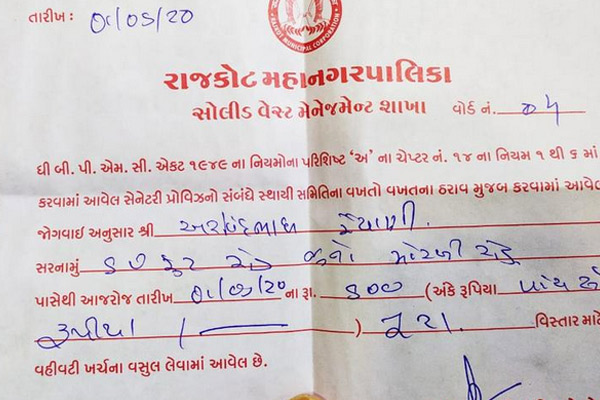 તારીખ : ૦૮/૦૬/૨૦
RAJKOT MUNICIPAL CORPORATION
રાજકોટ મહાનગરપાલિકા
સોલીડ વેસ્ટ મેનેજમેન્ટ શાખા વોર્ડ નં. ૦૫
ધી બી. પી. એમ. સી. એકટ ૧૯૪૯ ના નિયમોના પરિશિષ્ટ 'અ' ના ચેપ્ટર નં. ૧૪ ના નિયમ ૧ થી ૬ માં
કરવામાં આવેલ સેનેટરી પ્રોવિઝનો સંબંધે સ્થાયી સમિતિના વખતો વખતના ઠરાવ મુજબ કરવામાં આવેલ
જોગવાઈ અનુસાર શ્રી અરવિંદભાઇ રૈયાણી.
સરનામું ૬૦ ફુટ રોડ જુનો મોરબી રોડ
પાસેથી આજરોજ તારીખ ના રૂા. ૫૦૦ (અંકે રૂપિયા પાંચ સો
રૂપીયા ) વિસ્તાર માટે
વહીવટી ખર્ચના વસુલ લેવામાં આવેલ છે.